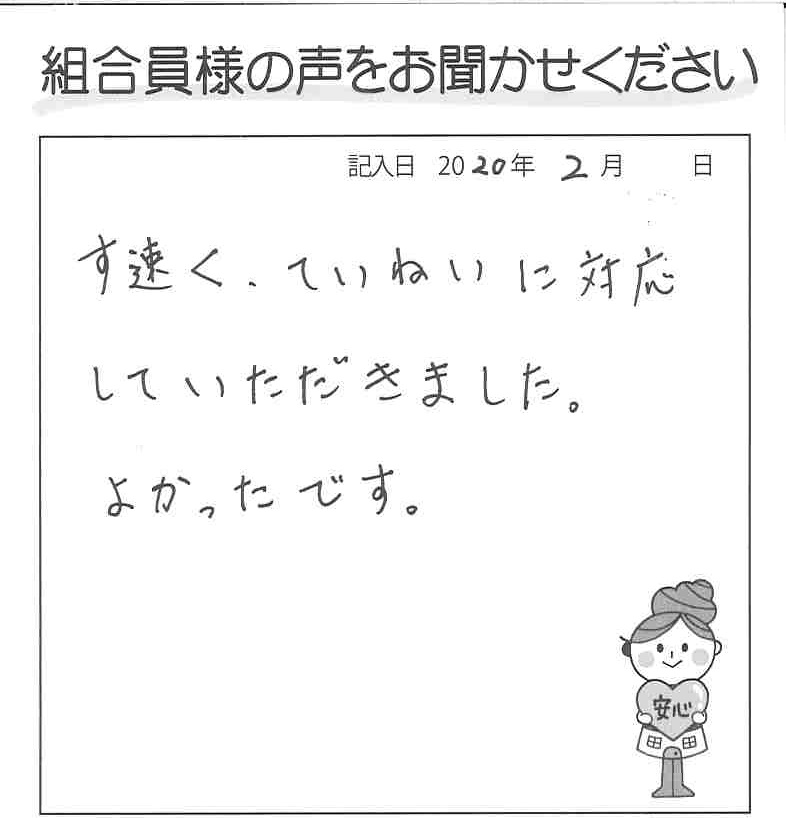 組合員様の声をお聞かせください
記入日 2020年 2月 日
す速く、ていねいに対応
していただきました。
よかったです。
安心